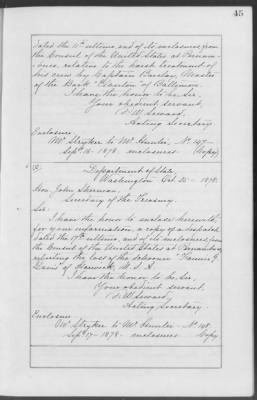 45
dated the 16th ultimo, and of its enclosures, from
the Consul of the United States at Pernam-
buco, relative to the harsh treatment of
his crew by Captain Barclay, Master
of the Bark "Clanton" of Baltimore.
I have the honor to be, Sir,
Your obedient servant,
F. W. Seward,
Acting Secretary.
Enclosure
Mr. Stryker to Mr. Hunter, No. 147
Sept. 16 - 1878. enclosures (Copy)
Department of State,
Washington Oct. 25 - 1878.
Hon. John Sherman,
Secretary of the Treasury.
Sir:
I have the honor to enclose herewith,
for your information, a copy of a despatch
dated the 17th ultimo, and of its enclosures, from
the Consul of the United States at Pernambuco,
reporting the loss of the schooner "Fannie
of U.S.A.
I have the honor to be, Sir,
Your obedient servant.
F. W. Seward,
Acting Secretary.
Enclosure
Mr. Stryker to Mr. Hunter - No. 148,
Sept. 17 - 1878 - enclosures Copy